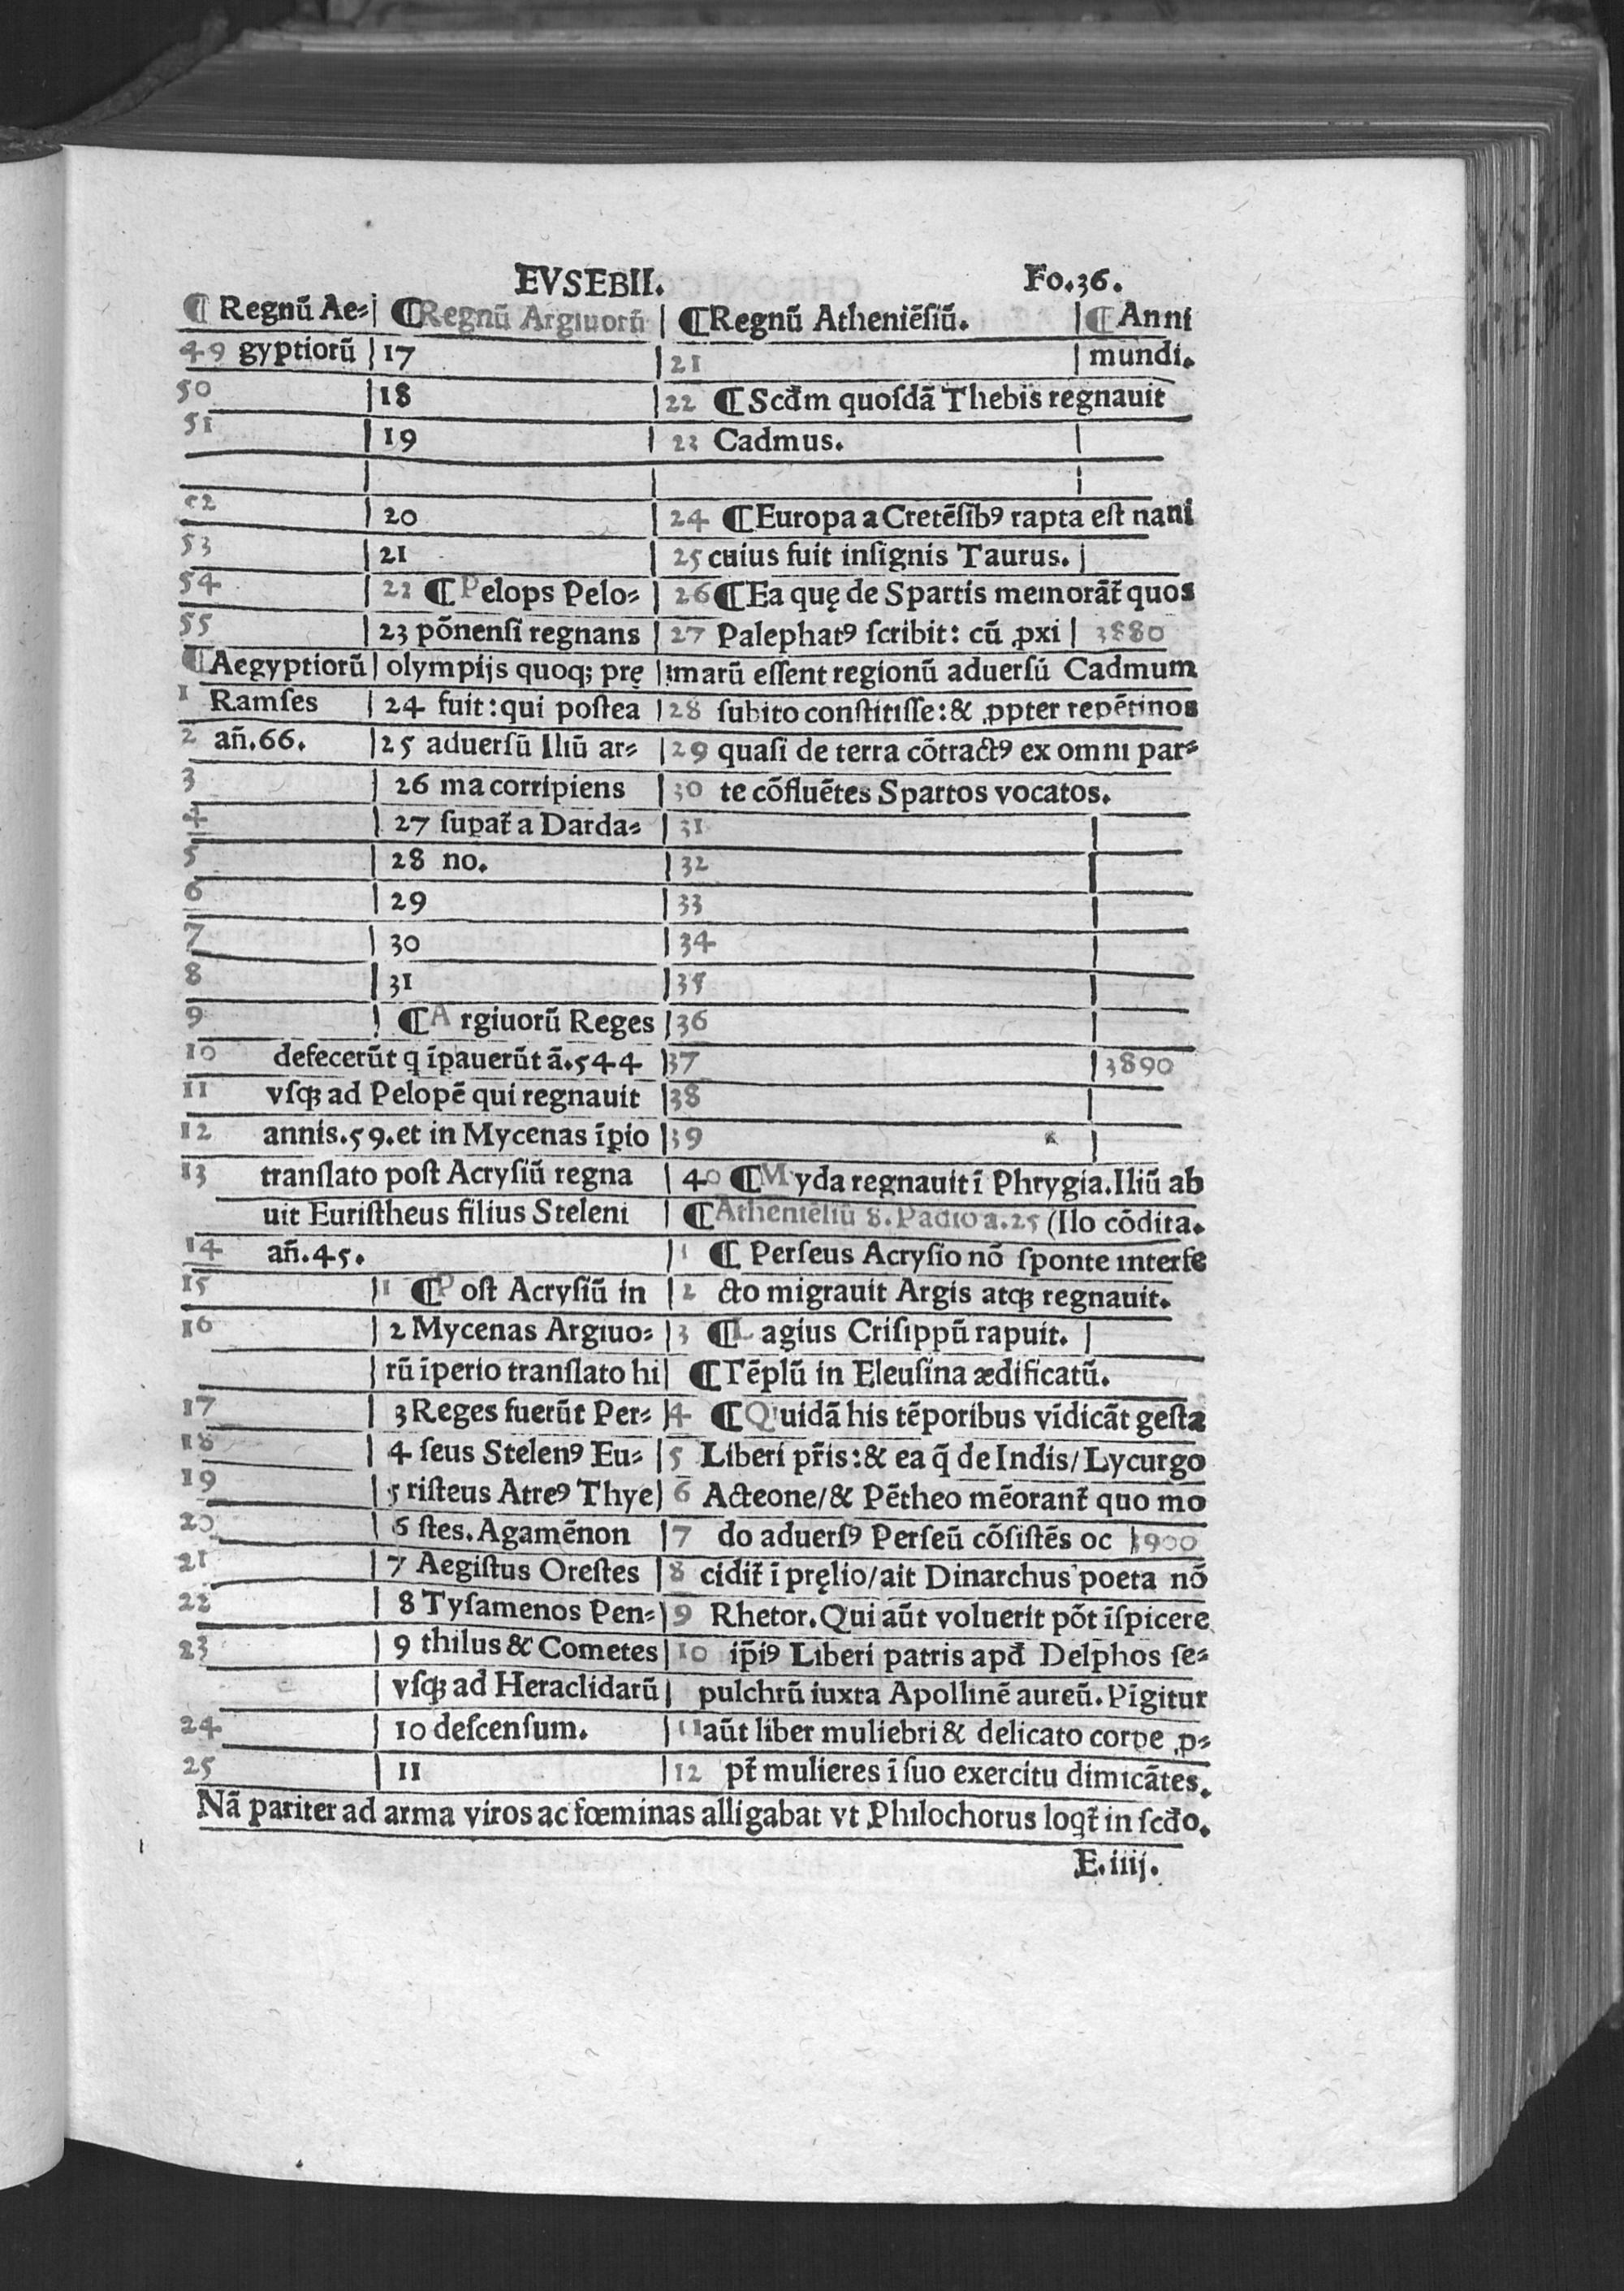 EVSEBII. Fo.36.
¶ Regnū Ae= ¶ Regnū Argiuorū ¶ Regnū Atheniēsiū. ¶ Anni
49 gyptiorū 17 21 mundi.
50 18 22 ¶ Scđm quosdā Thebis regnauit
51 19 23 Cadmus.
52 20 24 ¶ Europa a Cretēsibꝰ rapta est naui
53 21 25 cuius fuit insignis Taurus.
54 22 ¶ Pelops Pelo= 26 ¶ Ea quę de Spartis memorāt̃ quos
55 23 pōnensi regnans 27 Palephatꝰ scribit: cū ꝓxi 3880
¶ Aegyptiorū olympijs quoq; prę marū essent regionū aduersū Cadmum
1 Ramses 24 fuit: qui postea 28 subito constitisse: & ꝓpter repētinos
2 añ.66. 25 aduersū Iliū ar= 29 quasi de terra cōtractꝰ ex omni par=
3 26 ma corripiens 30 te cōfluētes Spartos vocatos.
4 27 supat̃ a Darda= 31
5 28 no. 32
6 29 33
7 30 34
8 31 35
9 ¶ Argiuorū Reges 36
10 defecerūt q īpauerūt ā.544 37 3890
11 vsqꝫ ad Pelopē qui regnauit 38
12 annis.59.et in Mycenas īpio 39
13 translato post Acrysiū regna 40 ¶ Myda regnauit ī Phrygia. Iliū ab
uit Euristheus filius Steleni ¶ Atheniēsiū 8. Pādio a.25 (Ilo cōdita.
14 añ.45. 1 ¶ Perseus Acrysio nō sponte interfe
15 1 ¶ Post Acrysiū in 2 cto migrauit Argis atqꝫ regnauit.
16 2 Mycenas Argiuo= 3 ¶ Lagius Crisippū rapuit.
rū īperio translato hi ¶ Tēplū in Eleusina ædificatū.
17 3 Reges fuerūt Per= 4 ¶ Quidā his tēporibus vīdicāt gesta
18 4 seus Stelenꝰ Eu= 5 Liberi pr̄is: & ea q̄ de Indis/ Lycurgo
19 5 risteus Atreꝰ Thye 6 Acteone/ & Pētheo mēorant̃ quo mo
20 6 stes. Agamēnon 7 do aduersꝰ Perseū cōsistēs oc 3900
21 7 Aegistus Orestes 8 cidit̃ ī pręlio/ ait Dinarchus poeta nō
22 8 Tysamenos Pen= 9 Rhetor. Qui aūt voluerit pōt īspicere
23 9 thilus & Cometes 10 ip̄iꝰ Liberi patris apđ Delphos se=
vsqꝫ ad Heraclidarū pulchrū iuxta Apollinē aureū. Pīgitur
24 10 descensum. 11 aūt liber muliebri & delicato corpe ꝓ=
25 11 12 pt̃ mulieres ī suo exercitu dimicātes.
Nā pariter ad arma viros ac fœminas alligabat vt Philochorus loqt̃ in scđo.
E.iiij.